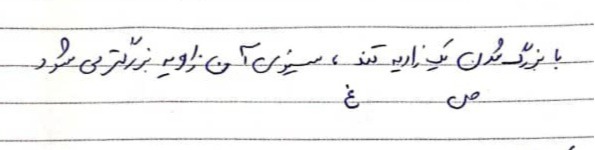 با بزرگ شدن یک زاویه تند ، سینوس آن زاویه بزرگتر می شود
ص غ